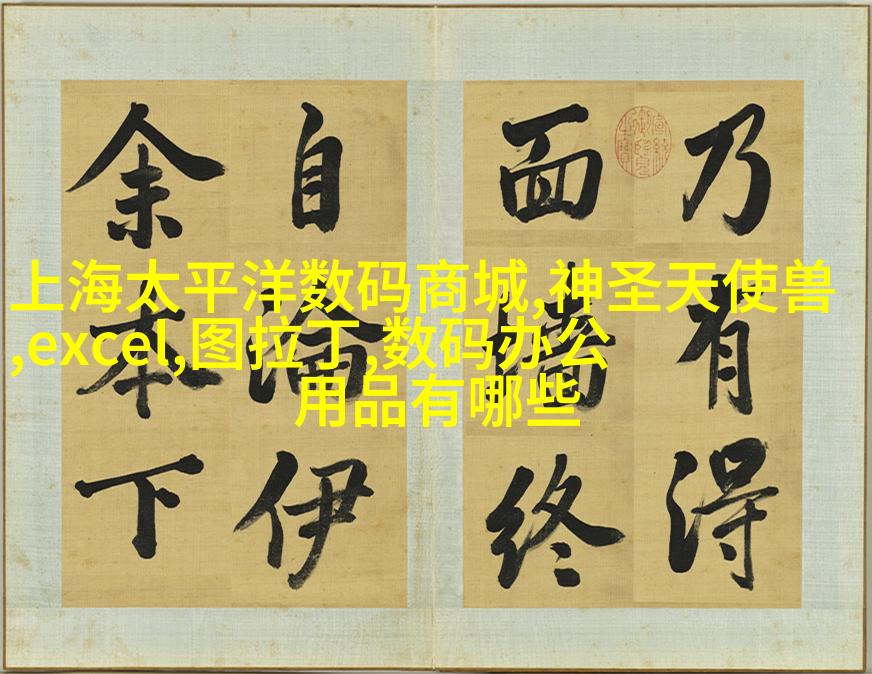 上海太平洋数码商城,神圣天使兽
,excel,图拉丁,数码办公
用品有哪些
乃有得
面墙终
自淪伊
余本下